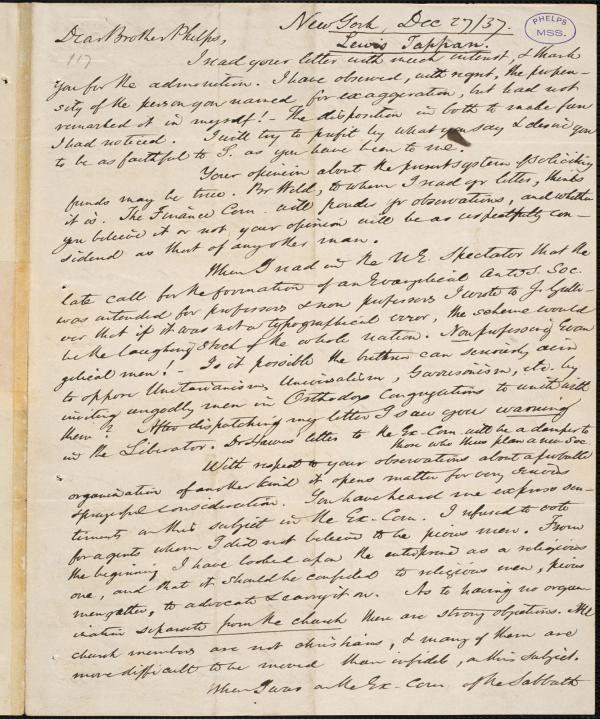 New York Dec 27/37.
PHELPS
MSS.
Lewis Tappan.
Dear Brother Phelps,
117
I read your letter with much interest, & thank
you for the admonition. I have observed, with regret, the propen-
sity of the person you named for exaggeration, but had not
remarked it in myself! – The disposition in both to made fun
I had noticed. I will try to profit by what you say & desire you
to be as faithful to S. as you have been to me.
Your opinion about the present system of soliciting
funds may be true. Br Weld, to whom I read yr letter, thinks
it is. The Finance Com. will ponder yr observations, and whether
you believe it or not, your opinion will be as respectfully con-
sidered as that of any other man.
When I read in the N.E. Spectator that the
late call for the formation of an Evangelical Anti S. Soc.
was intended for professors & non professors I wrote to J. Gulli-
ver that if it was not a typographical error, the scheme would
be the laughing stock of the whole nation. Non professing Evan
gelical men! – Is it possible the brethren can seriously aim
to oppose Unitarianism, Universalism, Garrisonism, etc. by
inviting ungodly men in Orthodox Congregations to unite with
them? After dispatching my letter I saw your warning
in the Liberator. Dr Hawes' letter to the Ex-Com. will be a damper to
those who thus plan a new Soc.
With respect to your observations about
organization of another kind it opens matter for very serious
& prayerful consideration. You have heard me express sen-
timents on this subject in the Ex-Com. I refused to vote
for agents whom I did not believe to be pious men. From
the beginning I have looked upon the enterprise as a religious
one, and that it should be confided to religious men, pious
men rather, to advocate & carry it on. As to having no organ-
ization separate from the church there are strong objections. All
church members are not christians, & many of them are
more difficult to be moved than infidels, on this subject.
When I was on the Ex-Com. of the Sabbath